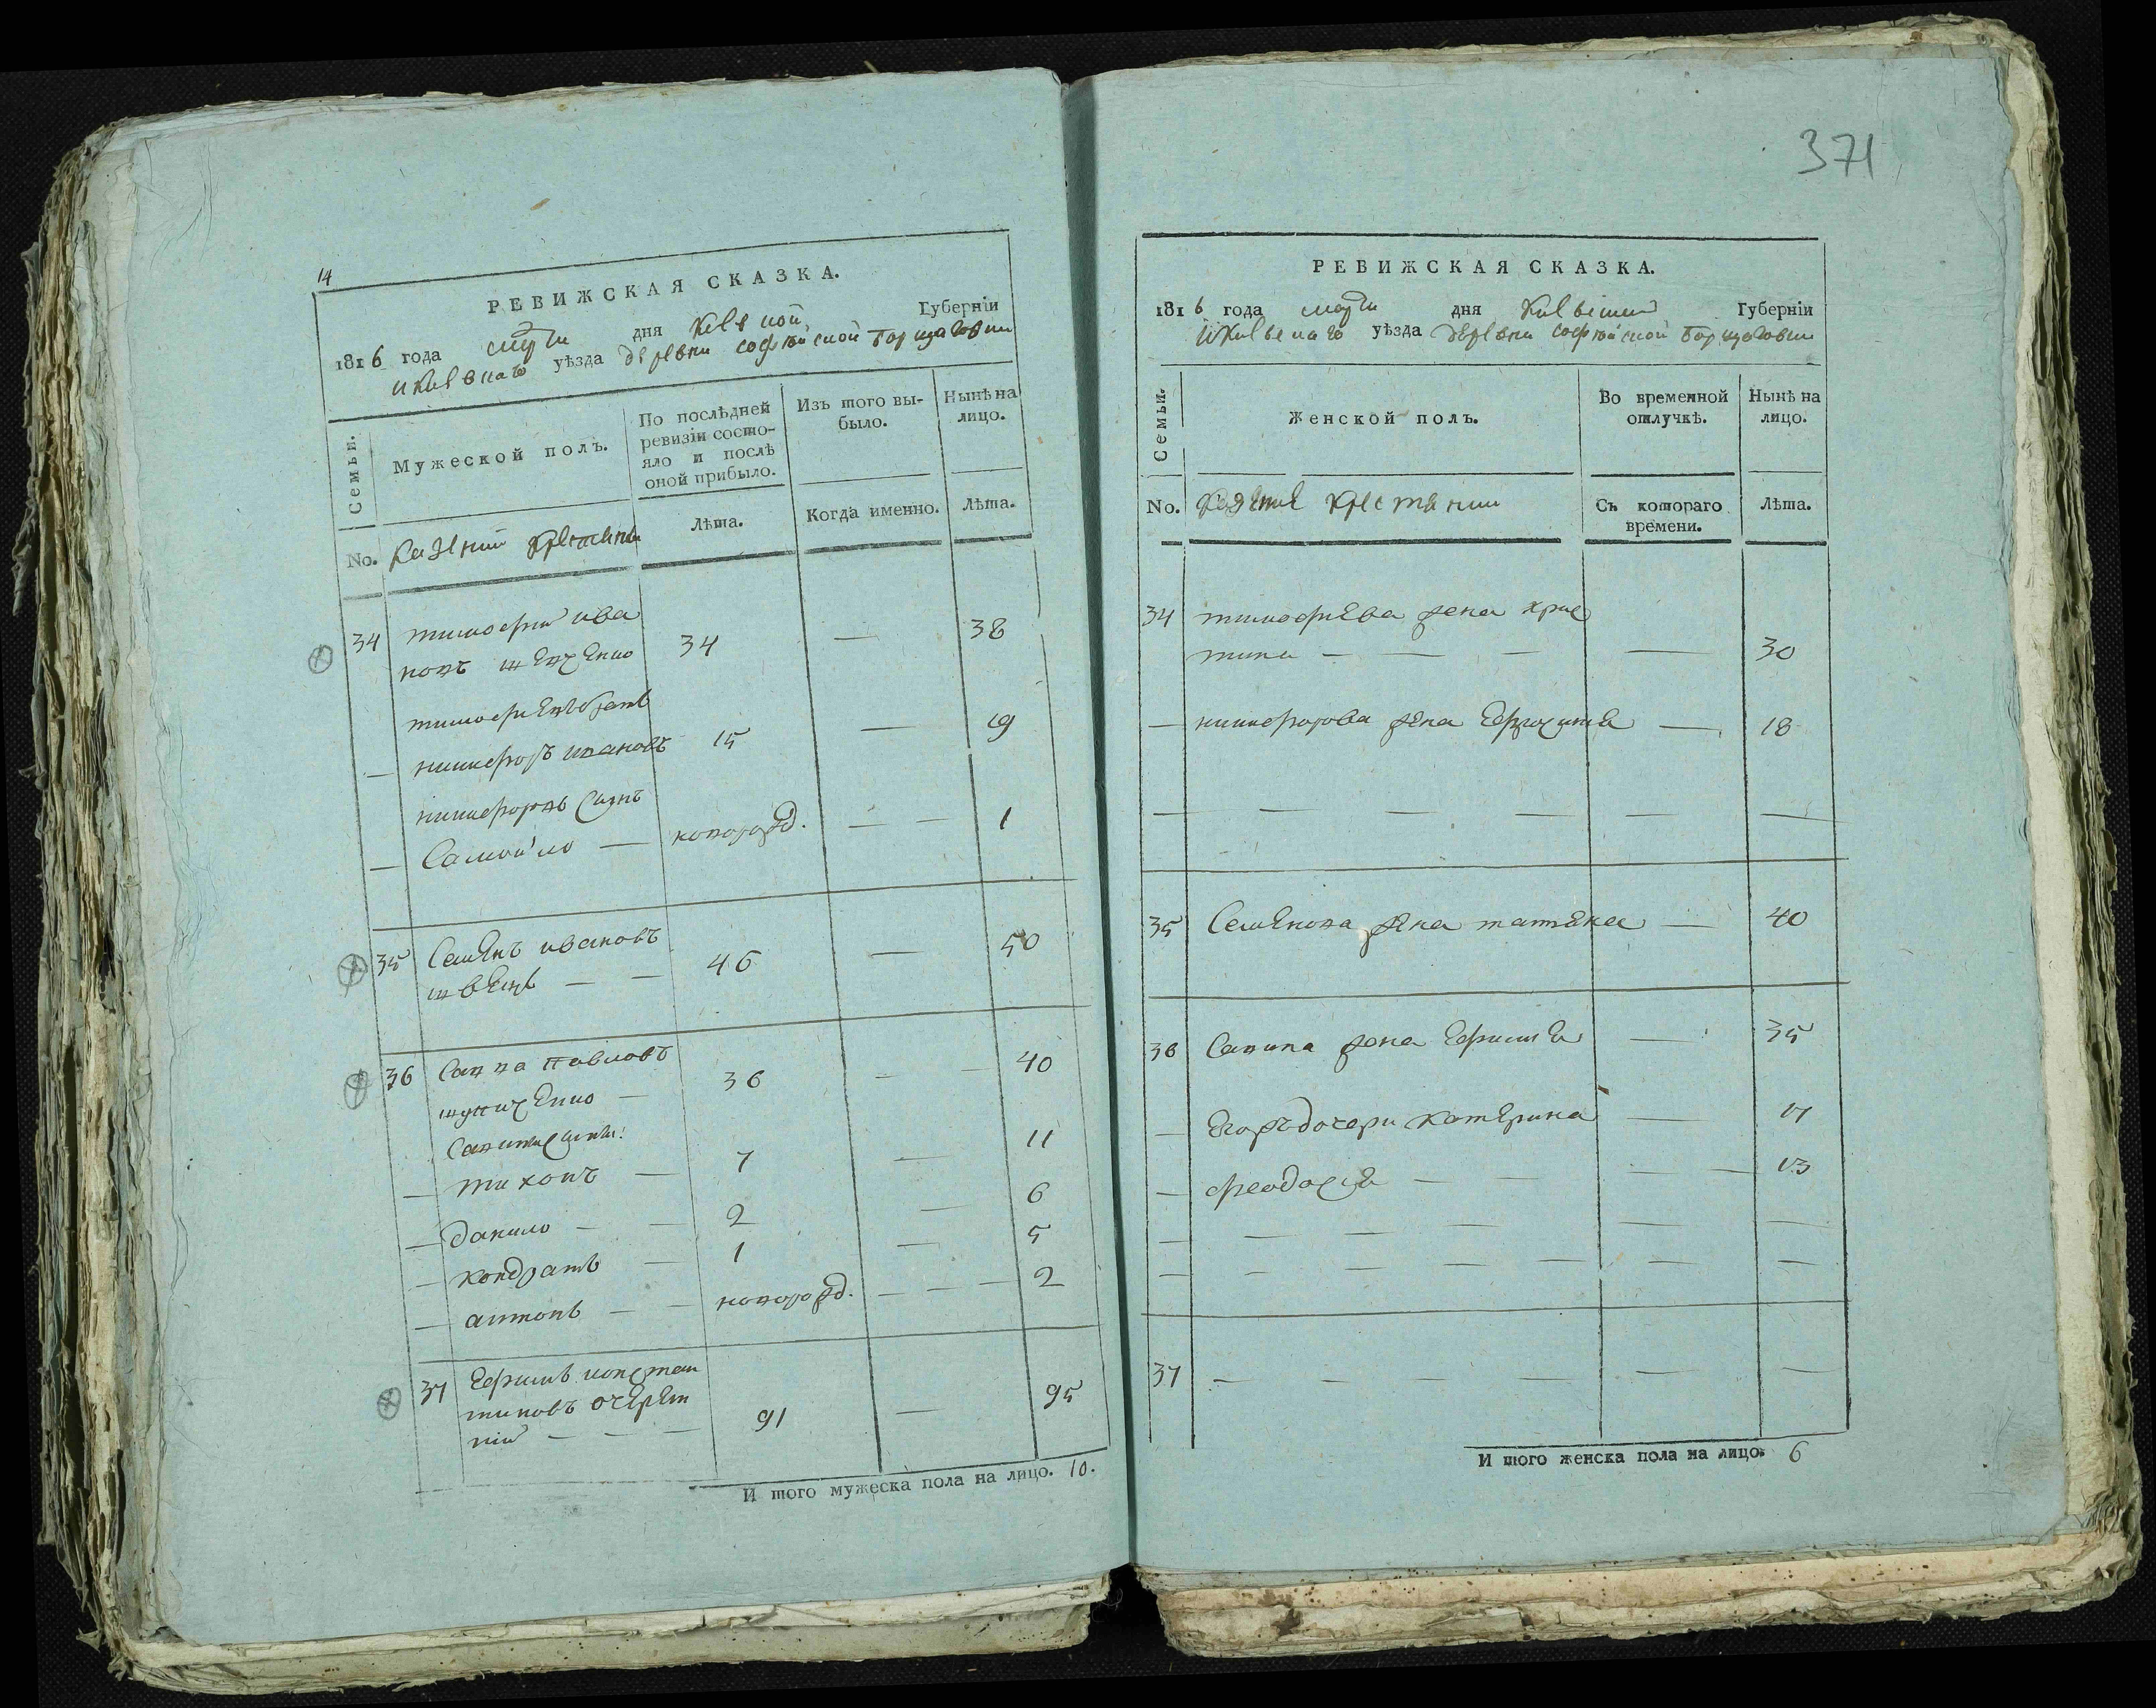 14
РЕВИЖСКАЯ СКАЗКА.
1816 года марта дня Киевской Губернiи
и Киевскаго уѣзда деревни Софiйской Борщаговки
Семьи.
Мужеской полъ.
По послѣдней ревизiи состояло и послѣ оной прибыло.
Изъ того выбыло.
Нынѣ на лицо.
No. казенни крестяни
Лѣта.
Когда именно.
Лѣта.
34 тимофей ива
новъ шевченко 34 — 38
тимофѣевъ братъ
— никифоръ ивановъ 15 — 19
никифоровъ сынъ
— Самойло — новорожд. — — 1
35 Семенъ ивановъ
швецъ — — 46 — 50
36 Савва павловъ
— 36 — — 40
Савины сыны:
— тихонъ — 7 — 11
— данило — — 2 — 6
— кондратъ — 1 — 5
— антонъ — — новорожд. — — — 2
37 Ефимъ констан
тиновъ очерет
нiй — — — 91 — 95
И того мужеска пола на лицо. 10.
371
РЕВИЖСКАЯ СКАЗКА.
1816 года марта дня Киевской Губернiи
и Киевскаго уѣзда деревни Софiйской Борщаговки
Семьи.
Женской полъ.
Во временной отлучкѣ.
Нынѣ на лицо.
No. казение крестяни
Съ котораго времени.
Лѣта.
34 тимофѣева жена хрис
тина — — — — 30
— никифорова жена Ефросиния — 18
— — — — — —
35 Семенова жена татяна — 40
36 Савина жена Ефимия — 35
— Егоръ дочери катерина — 17
— феодосия — — — — 13
— — — — — —
— — — — — — —
37 — — — — — —
И того женска пола на лицо. 6